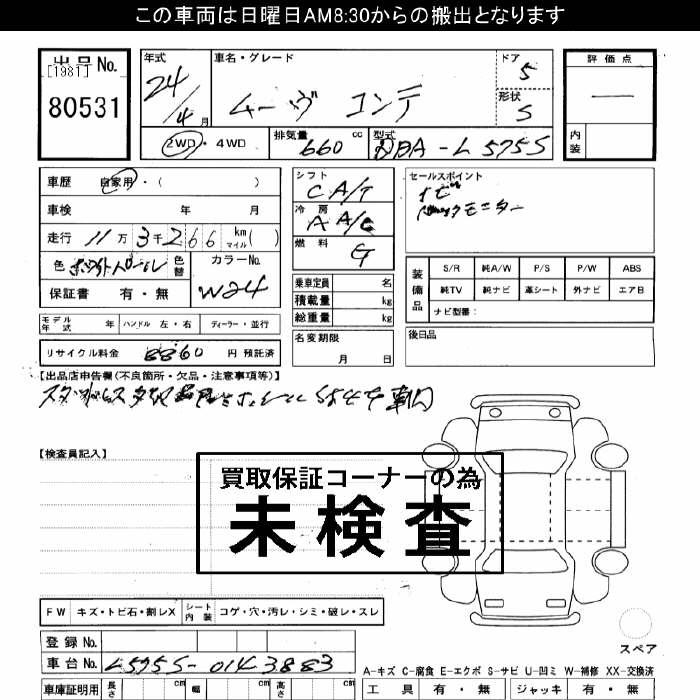 この車両は日曜日AM8:30からの搬出となります
出品No.
[1981]
80531
年式
24/4月
車名・グレード
ムーヴ コンテ
ドア 5
形状 S
評価点
—
内装
2WD・4WD
排気量 660 cc
型式 DBA-L575S
車歴 自家用・( )
車検 年 月
走行 11万3千266 km マイル( )
色 ホワイトパール 色替
カラーNo.
W24
保証書 有・無
シフト CA/T
冷房 AA/C
燃料 G
乗車定員 名
積載量 kg
総重量 kg
名変期限
月 日
セールスポイント
ナビ
バックモニター
装備品
S/R 純A/W P/S P/W ABS
純TV 純ナビ 革シート 外ナビ エア日
ナビ型番:
後日品
モデル年式 年 ハンドル 左・右 ディーラー・並行
リサイクル料金 8860 円 預託済
【出品店申告欄(不良箇所・欠品・注意事項等)】
スタッドレスタイヤ
車両
【検査員記入】
買取保証コーナーの為
未検査
FW キズ・トビ石・割レX シート内装 コゲ・穴・汚レ・シミ・破レ・スレ
スペア
登録No.
車台No. L575S-0143883
A-キズ C-腐食 E-エクボ S-サビ U-凹ミ W-補修 XX-交換済
車庫証明用 長さ cm 幅 cm 高さ cm
工具 有・無 ジャッキ 有・無